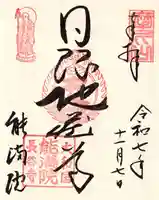 奉拝
令和七年
十一月七日
日限地蔵尊
能満院
能満院
長谷寺